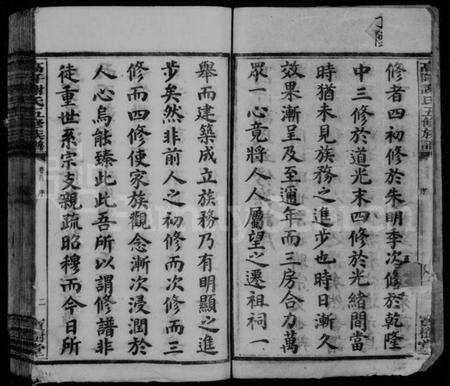 修者四初修於朱明季次修於乾隆
中三修於道光末四修於光緒間當
時猶未見族務之進步也時日漸久
效果漸呈及至適年而三房合力萬
眾一心竟將人人屬望之遷祖祠一
舉而建築成立族務乃有明顯之進
步矣然非前人之初修而次修而三
修而四修使家族觀念漸次浸潤於
人心烏能臻此此吾所以謂修譜非
徒重世系宗支親疏昭穆而今日所